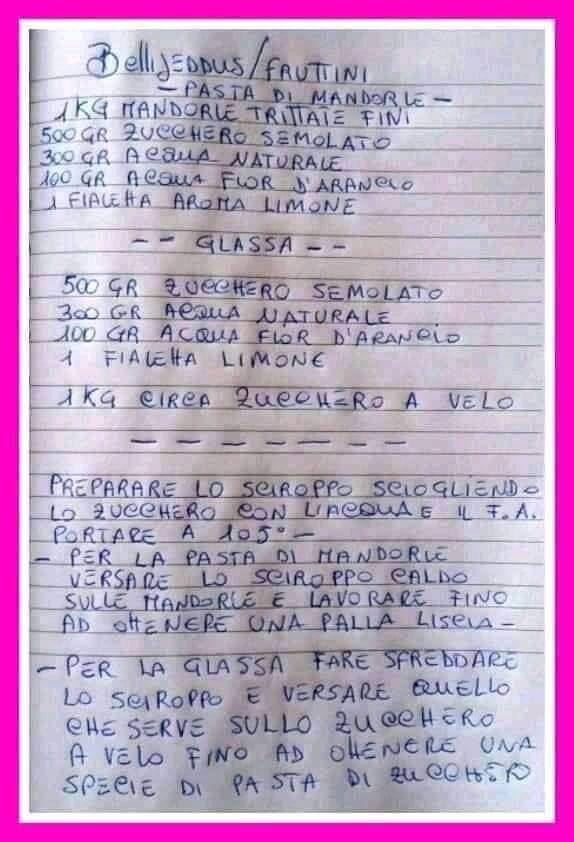 BelliJEDDUS/FRUTTINI
- PASTA DI MANDORLE -
1KG MANDORLE TRITTATE FINI
500 GR ZUCCHERO SEMOLATO
300 GR ACQUA NATURALE
100 GR ACQUA FIOR D'ARANCIO
1 FIALETTA AROMA LIMONE
-- GLASSA --
500 GR ZUCCHERO SEMOLATO
300 GR ACQUA NATURALE
100 GR ACQUA FIOR D'ARANCIO
1 FIALETTA LIMONE
1 KG CIRCA ZUCCHERO A VELO
- - - - - - -
PREPARARE LO SCIROPPO SCIOGLIENDO
LO ZUCCHERO CON L'ACQUA E IL F.A.
PORTARE A 105° -
- PER LA PASTA DI MANDORLE
VERSARE LO SCIROPPO CALDO
SULLE MANDORLE E LAVORARE FINO
AD OTTENERE UNA PALLA LISCIA -
- PER LA GLASSA FARE SFREDDARE
LO SCIROPPO E VERSARE QUELLO
CHE SERVE SULLO ZUCCHERO
A VELO FINO AD OTTENERE UNA
SPECIE DI PASTA DI ZUCCHERO